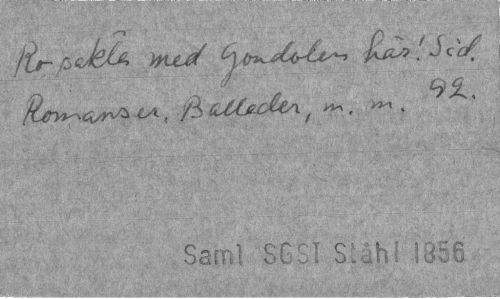 Ro sakta med Gondolen här! Sid.
Romanser, Ballader, m. m. 92.
Saml SGST Ståhl 1856